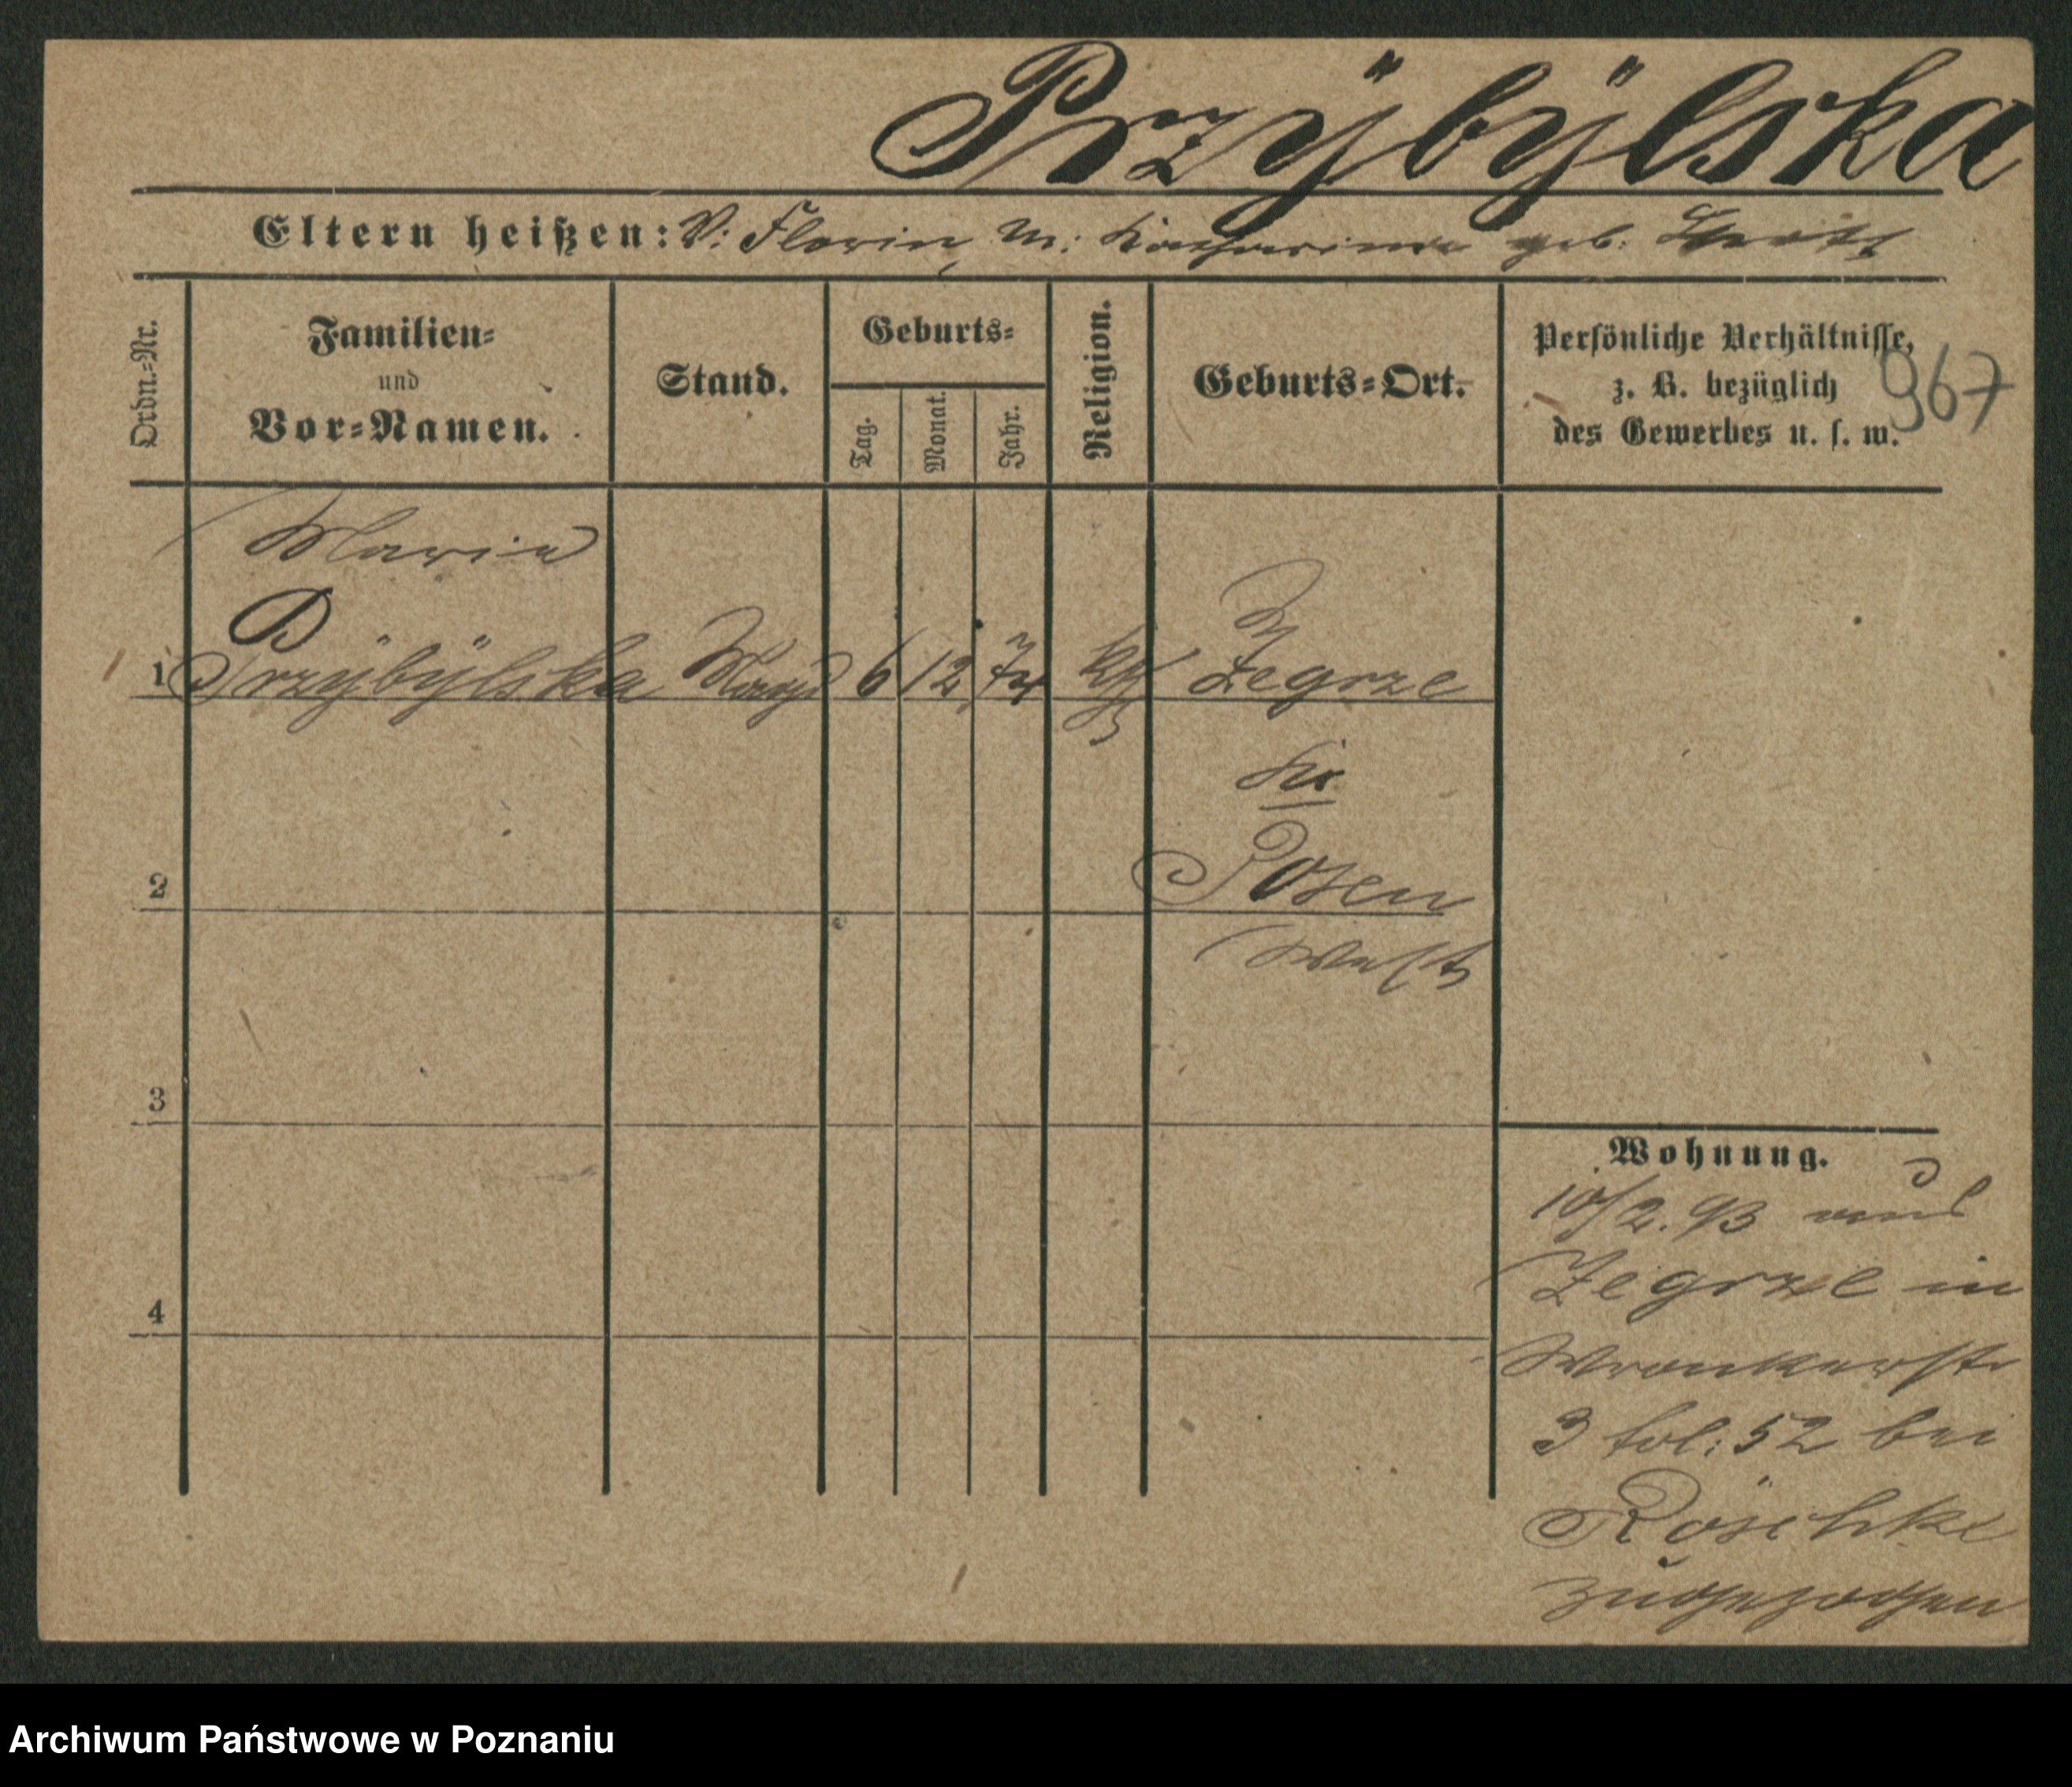 Przÿbÿlska
Eltern heißen: V: Florin, M: Katharina geb.
Ordn.-Nr.
Familien-
und
Vor-Namen.
Stand.
Geburts-
Tag.
Monat.
Jahr.
Religion.
Geburts-Ort.
Persönliche Verhältnisse,
z. B. bezüglich
des Gewerbes u. s. w.
967
Maria
1 Przÿbÿlska Magd 6 12 74 kth Zegrze
Kr.
Posen
2
West
3
4
Wohnung.
10/2. 93 aus
Zegrze in
Wronkerstr
3 bei
Röschke
zugezogen
Archiwum Państwowe w Poznaniu